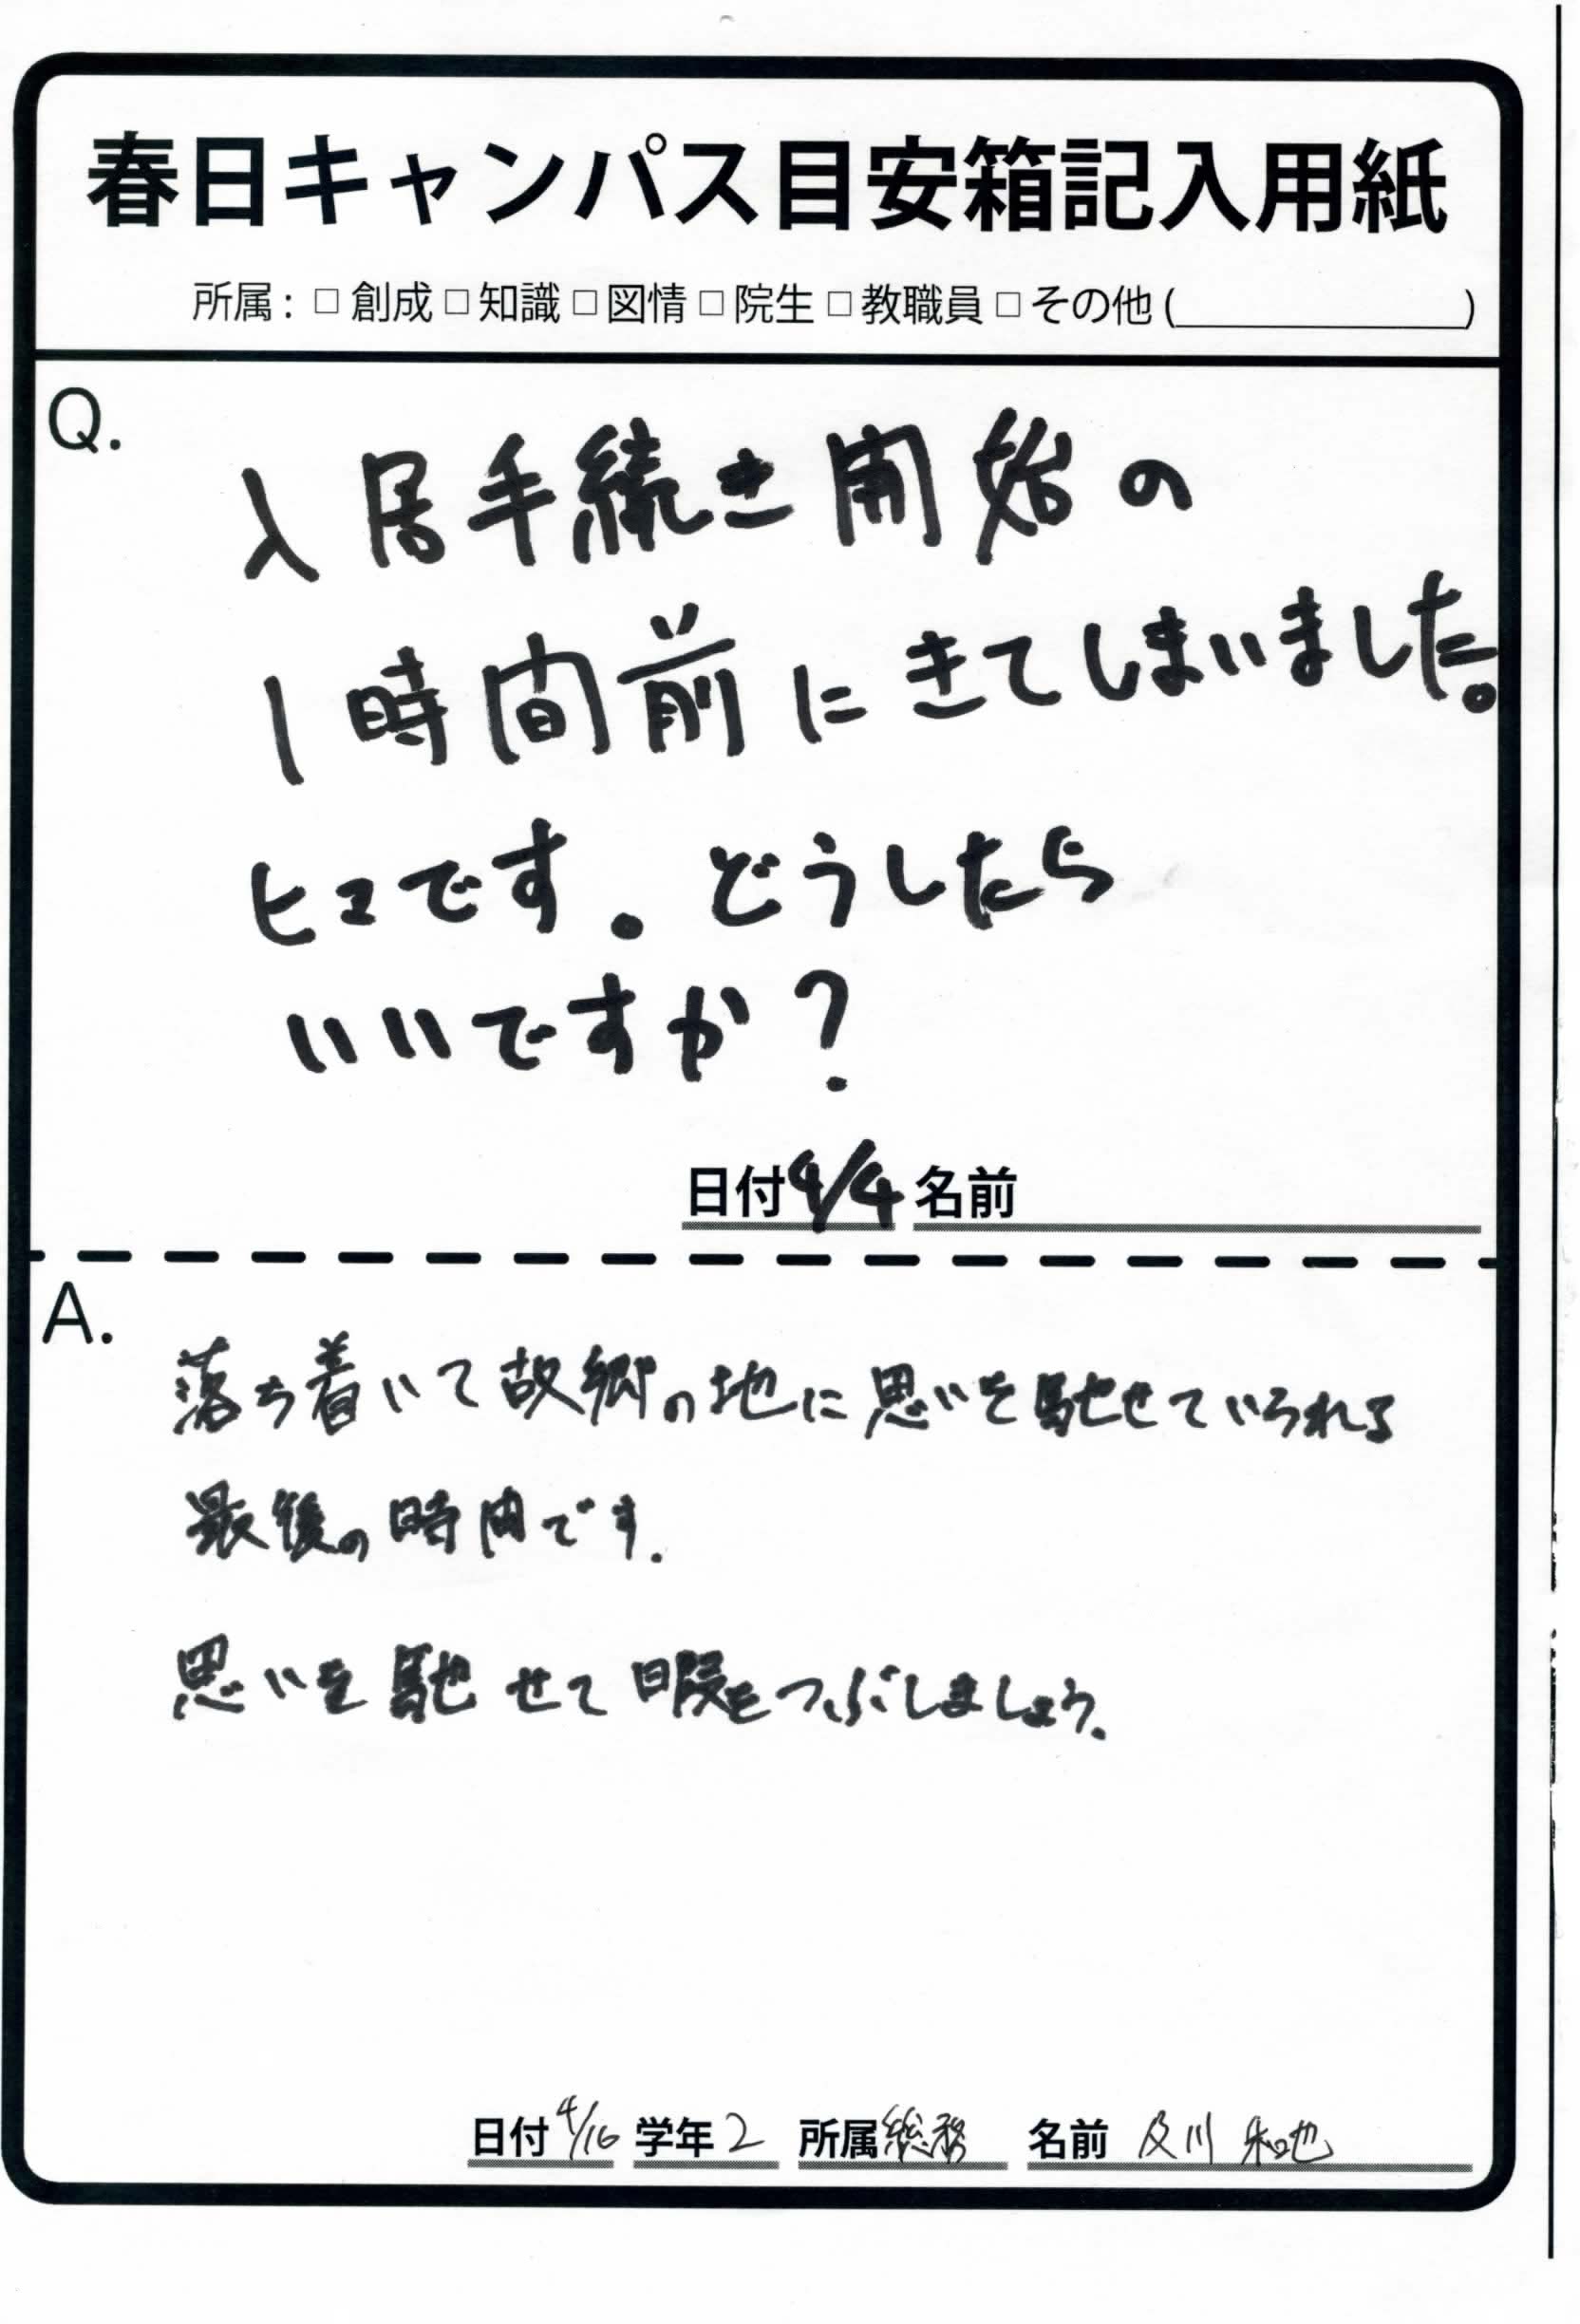 春日キャンパス目安箱記入用紙
所属: □ 創成 □ 知識 □ 図情 □ 院生 □ 教職員 □ その他 ( )
Q.
入居手続き開始の
1時間前にきてしまいました。
ヒマです。どうしたら
いいですか?
日付 4/4 名前
A.
落ち着いて故郷の地に思いを馳せていられる
最後の時間です.
思いを馳せて暇をつぶしましょう.
日付 4/16 学年 2 所属 総務 名前 及川 和也